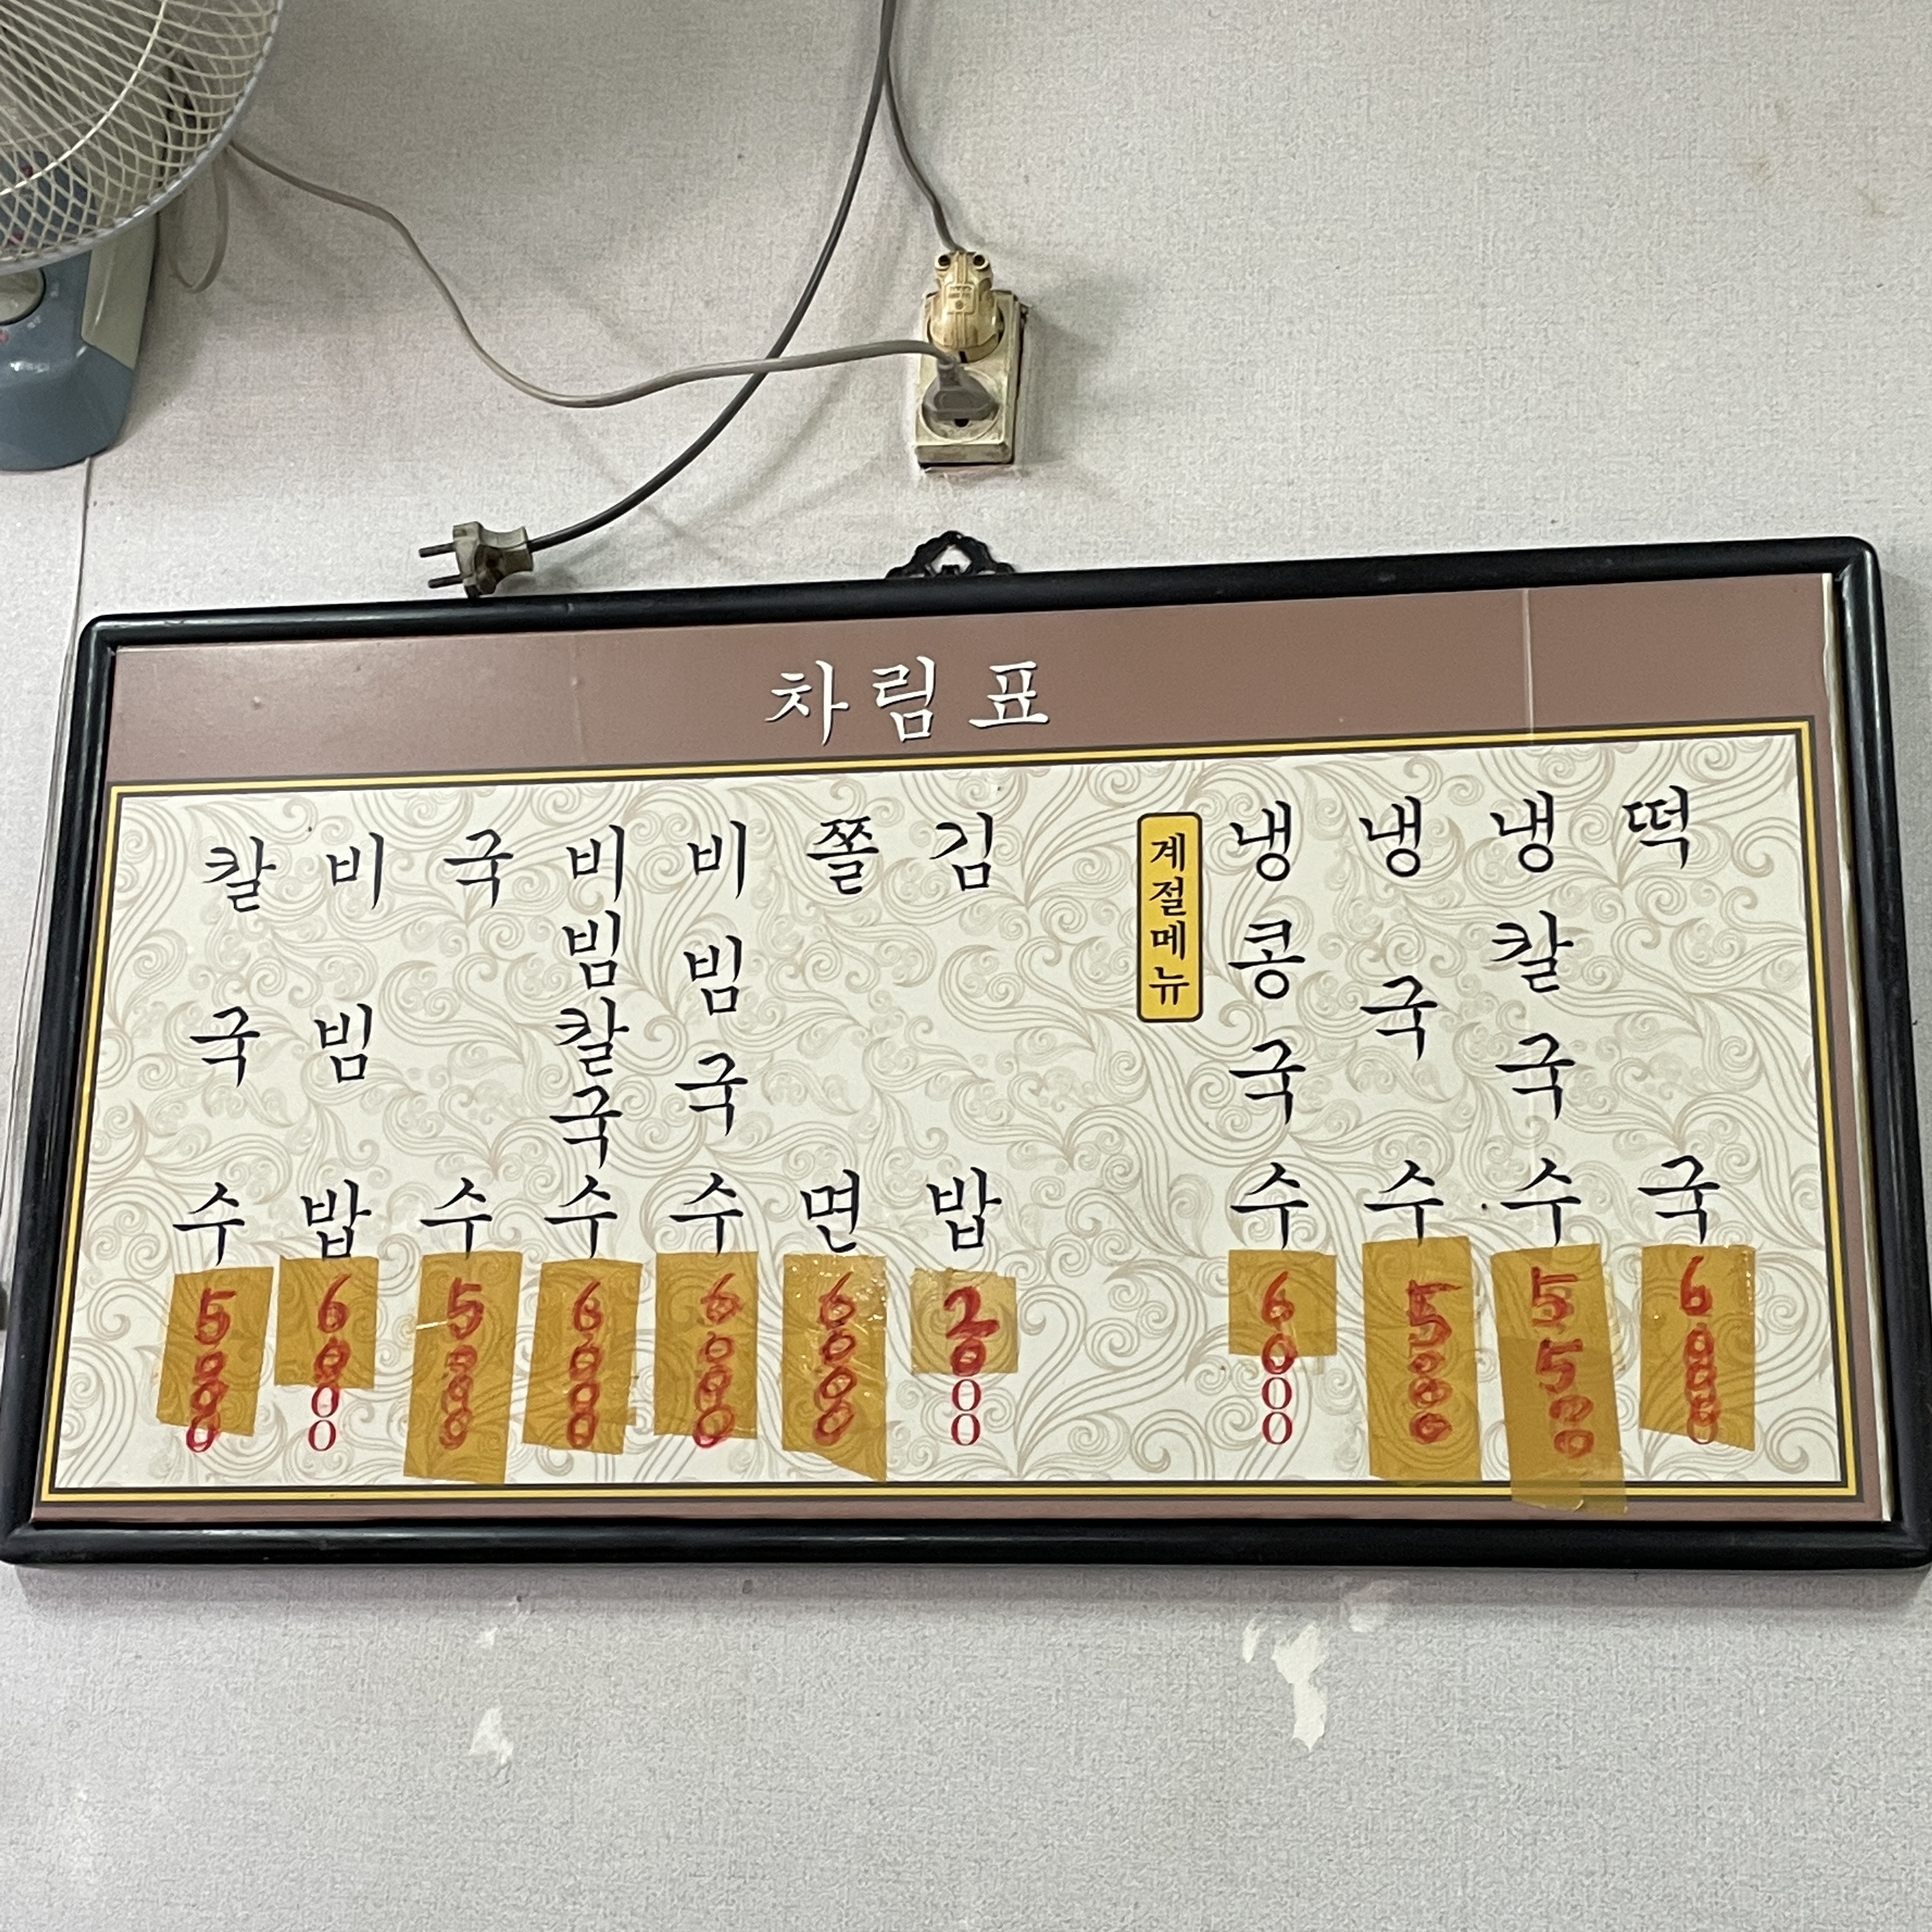 차림표
칼국수 5000
비빔밥 6000
국수 5000
비빔칼국수 6000
비빔국수 6000
쫄면 6000
김밥 2000
계절메뉴
냉콩국수 6000
냉국수 5500
냉칼국수 5500
떡국 6000